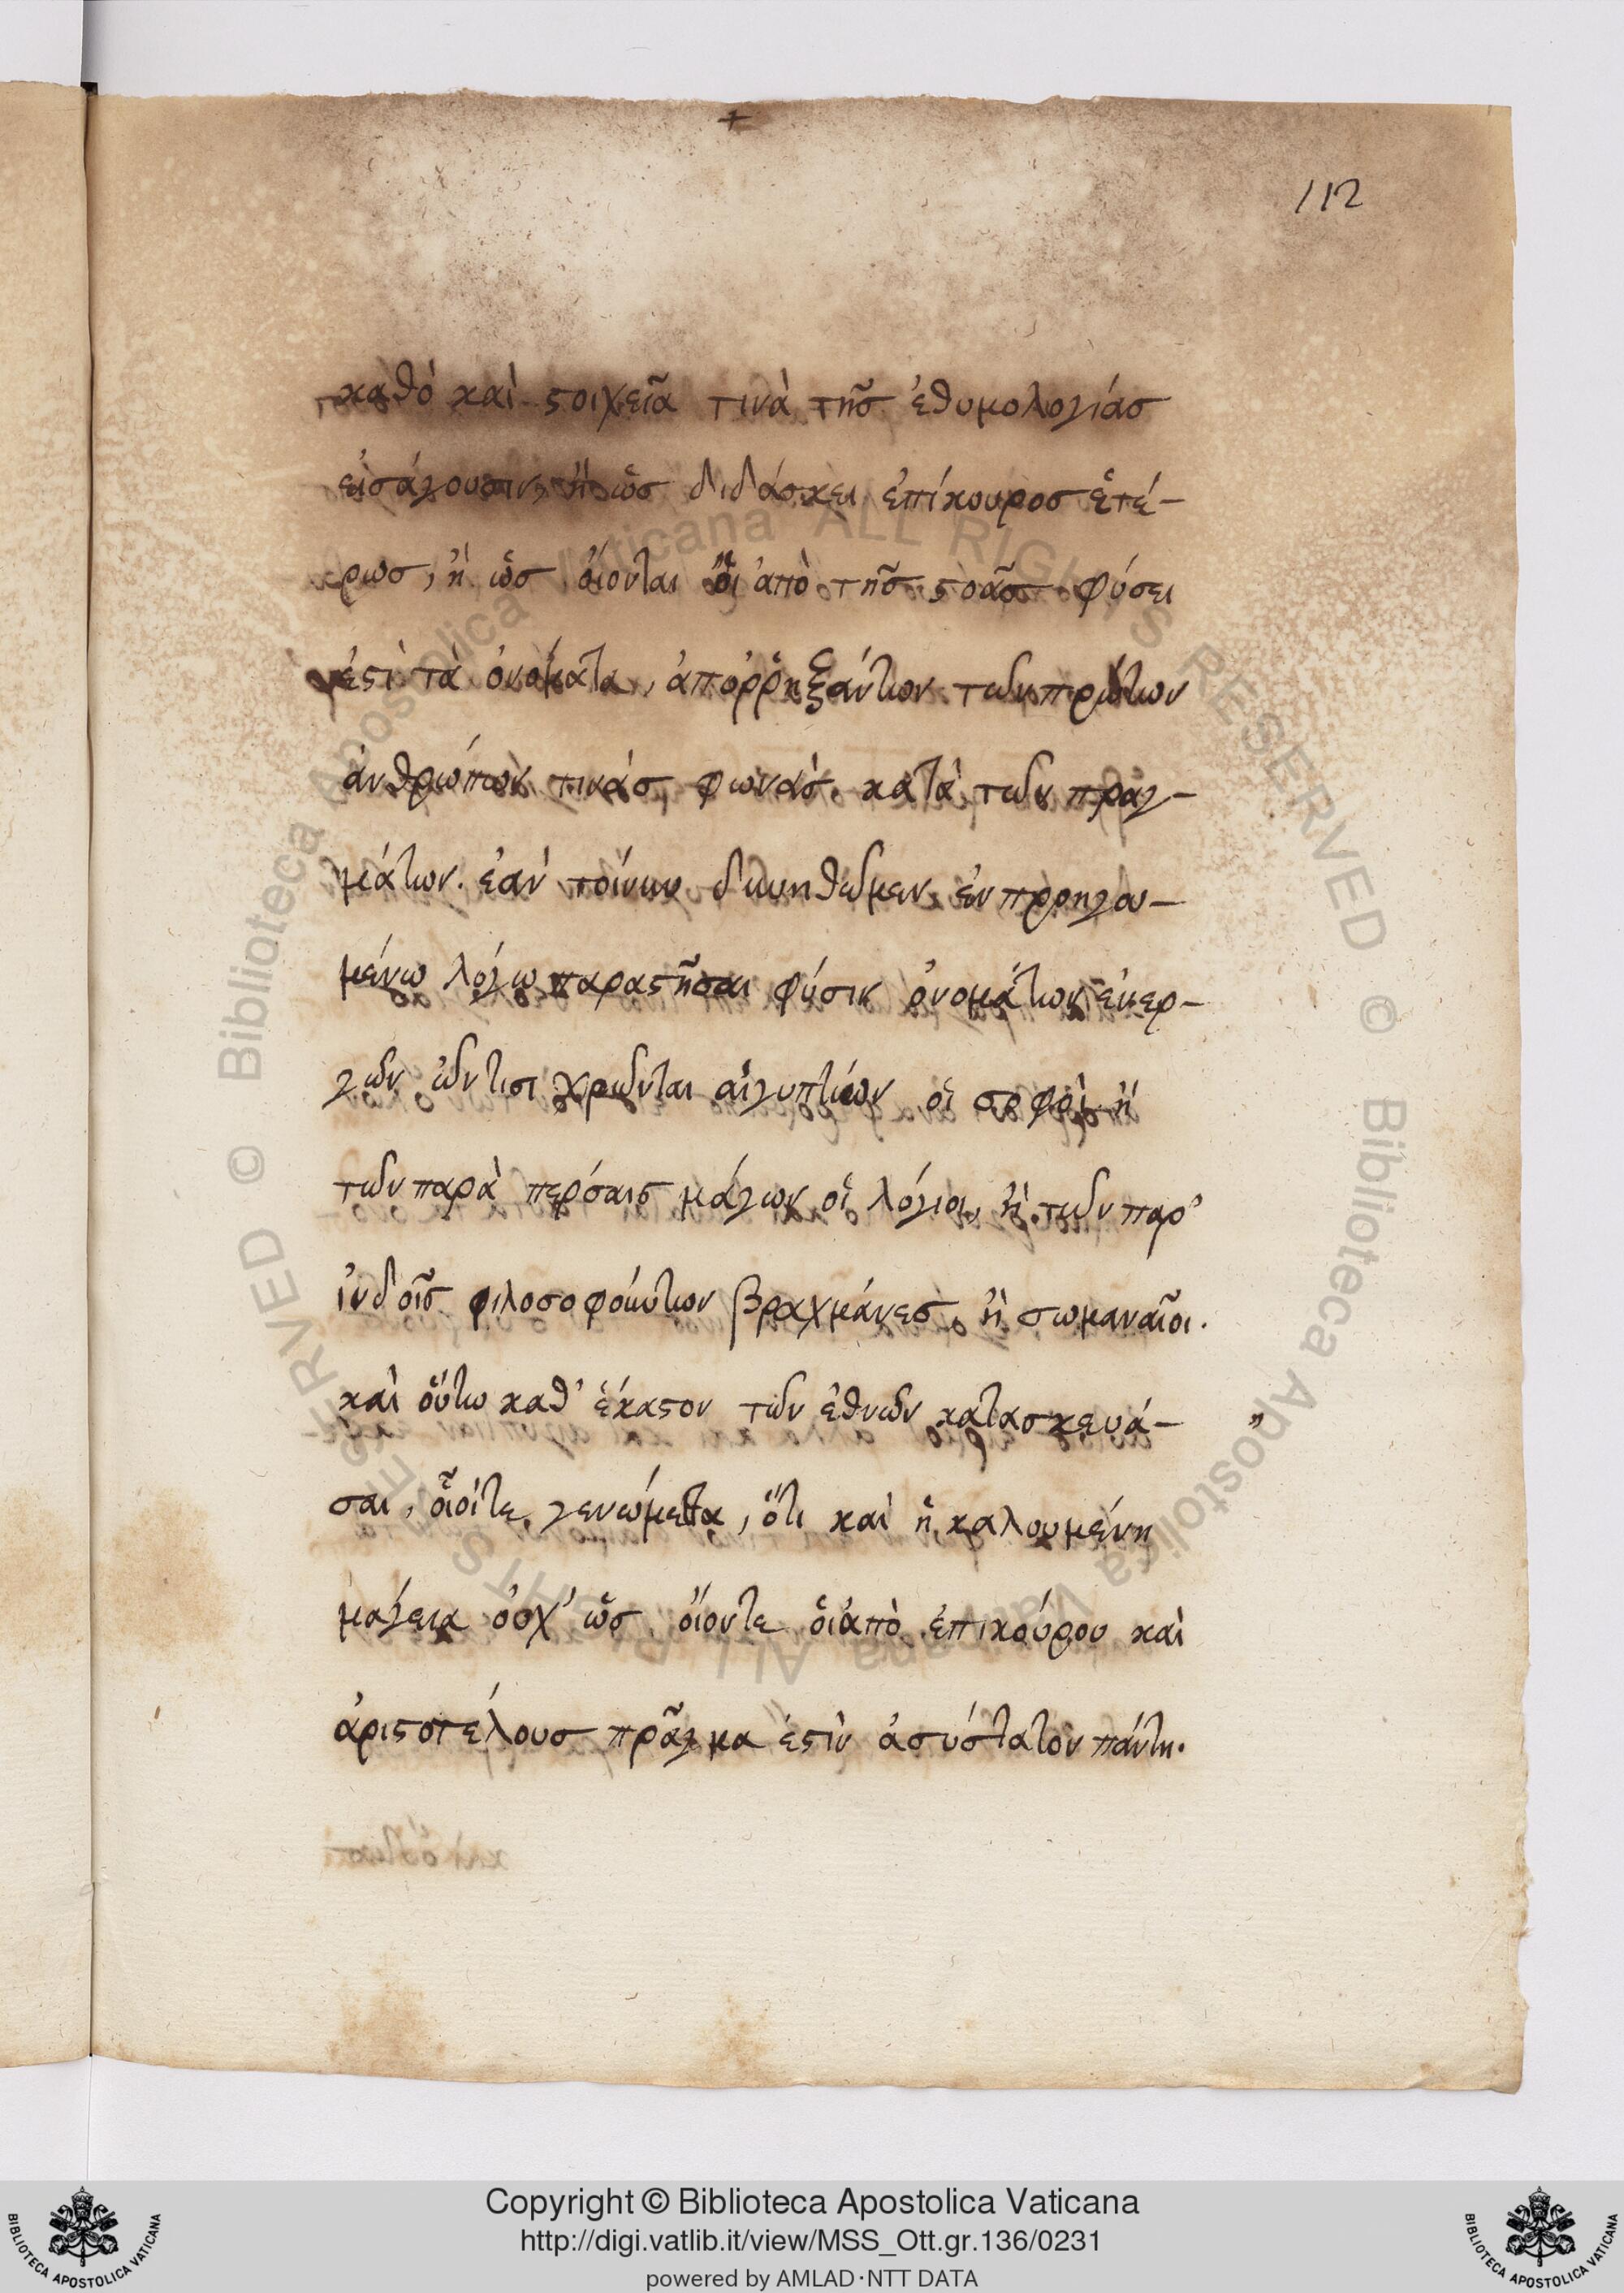 +
112
καθὸ καὶ ϛοιχεῖα τινὰ τῆσ ἐθυμολογίάσ
εἰσάγουσιν, ἢ ὡσ διδάσκει ἐπίκουροσ ἑτέ-
ρωσ, ἢ ὡσ ὄιονται ὅι ἀπὸ τῆσ ϛοᾶσ φύσει
ἐϛὶ τά ὀνοματα, ἀποῤῥηξάντων τῶν πρώτων
ἀνθρώπων τινάσ φωνάσ. κατὰ τῶν πραγ-
μάτων. ἐὰν τοίνυν δυνηθῶμεν ἐν προηγου-
μένω λόγω παραϛῆσαι φύσιν ὀνομάτων ἐνερ-
γῶν ὧν τισι χρῶνται αἰγυπτίων οἱ σοφοὶ ἢ
τῶν παρὰ πέρσαισ μάγων οἱ λόγιοι, ἢ τῶν παρ'
ἰνδοῖσ φιλοσοφούντων βραχμάνεσ, ἢ σωμαναῖοι.
καὶ οὕτω καθ' ἑκαϛον τῶν ἐθνῶν κατασκευά- "
σαι, οἷοίτε γενώμεθα, ὅτι καὶ ἡ καλουμένη
μαγεια οὐχ' ὡσ ὄιοντε ὁι ἀπὸ ἐπικούρου καὶ
ἀριϛοτέλουσ πρᾶγμα ἐϛὶν ἀσύστατον πάντη.
Copyright © Biblioteca Apostolica Vaticana
http://digi.vatlib.it/view/MSS_Ott.gr.136/0231
powered by AMLAD·NTT DATA
BIBLIOTECA APOSTOLICA VATICANA
BIBLIOTECA APOSTOLICA VATICANA
© Biblioteca Apostolica Vaticana ALL RIGHTS RESERVED
© Biblioteca Apostolica Vaticana ALL RIGHTS RESERVED